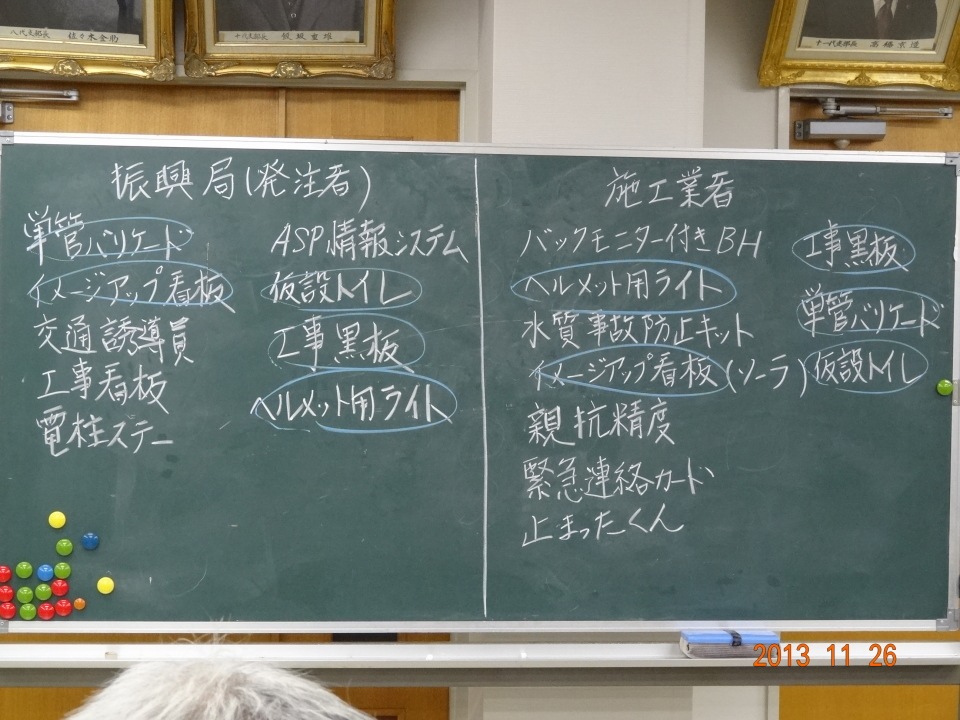 八代支部長 佐々木金助
十代支部長
十一代支部長
振興局(発注者)
単管バリケード
イメージアップ看板
交通誘導員
工事看板
電柱ステー
ASP情報システム
仮設トイレ
工事黒板
ヘルメット用ライト
施工業者
バックモニター付きBH
ヘルメット用ライト
水質事故防止キット
イメージアップ看板(ソーラ)
親抗精度
緊急連絡カード
止まったくん
工事黒板
単管バリケード
仮設トイレ
2013 11 26